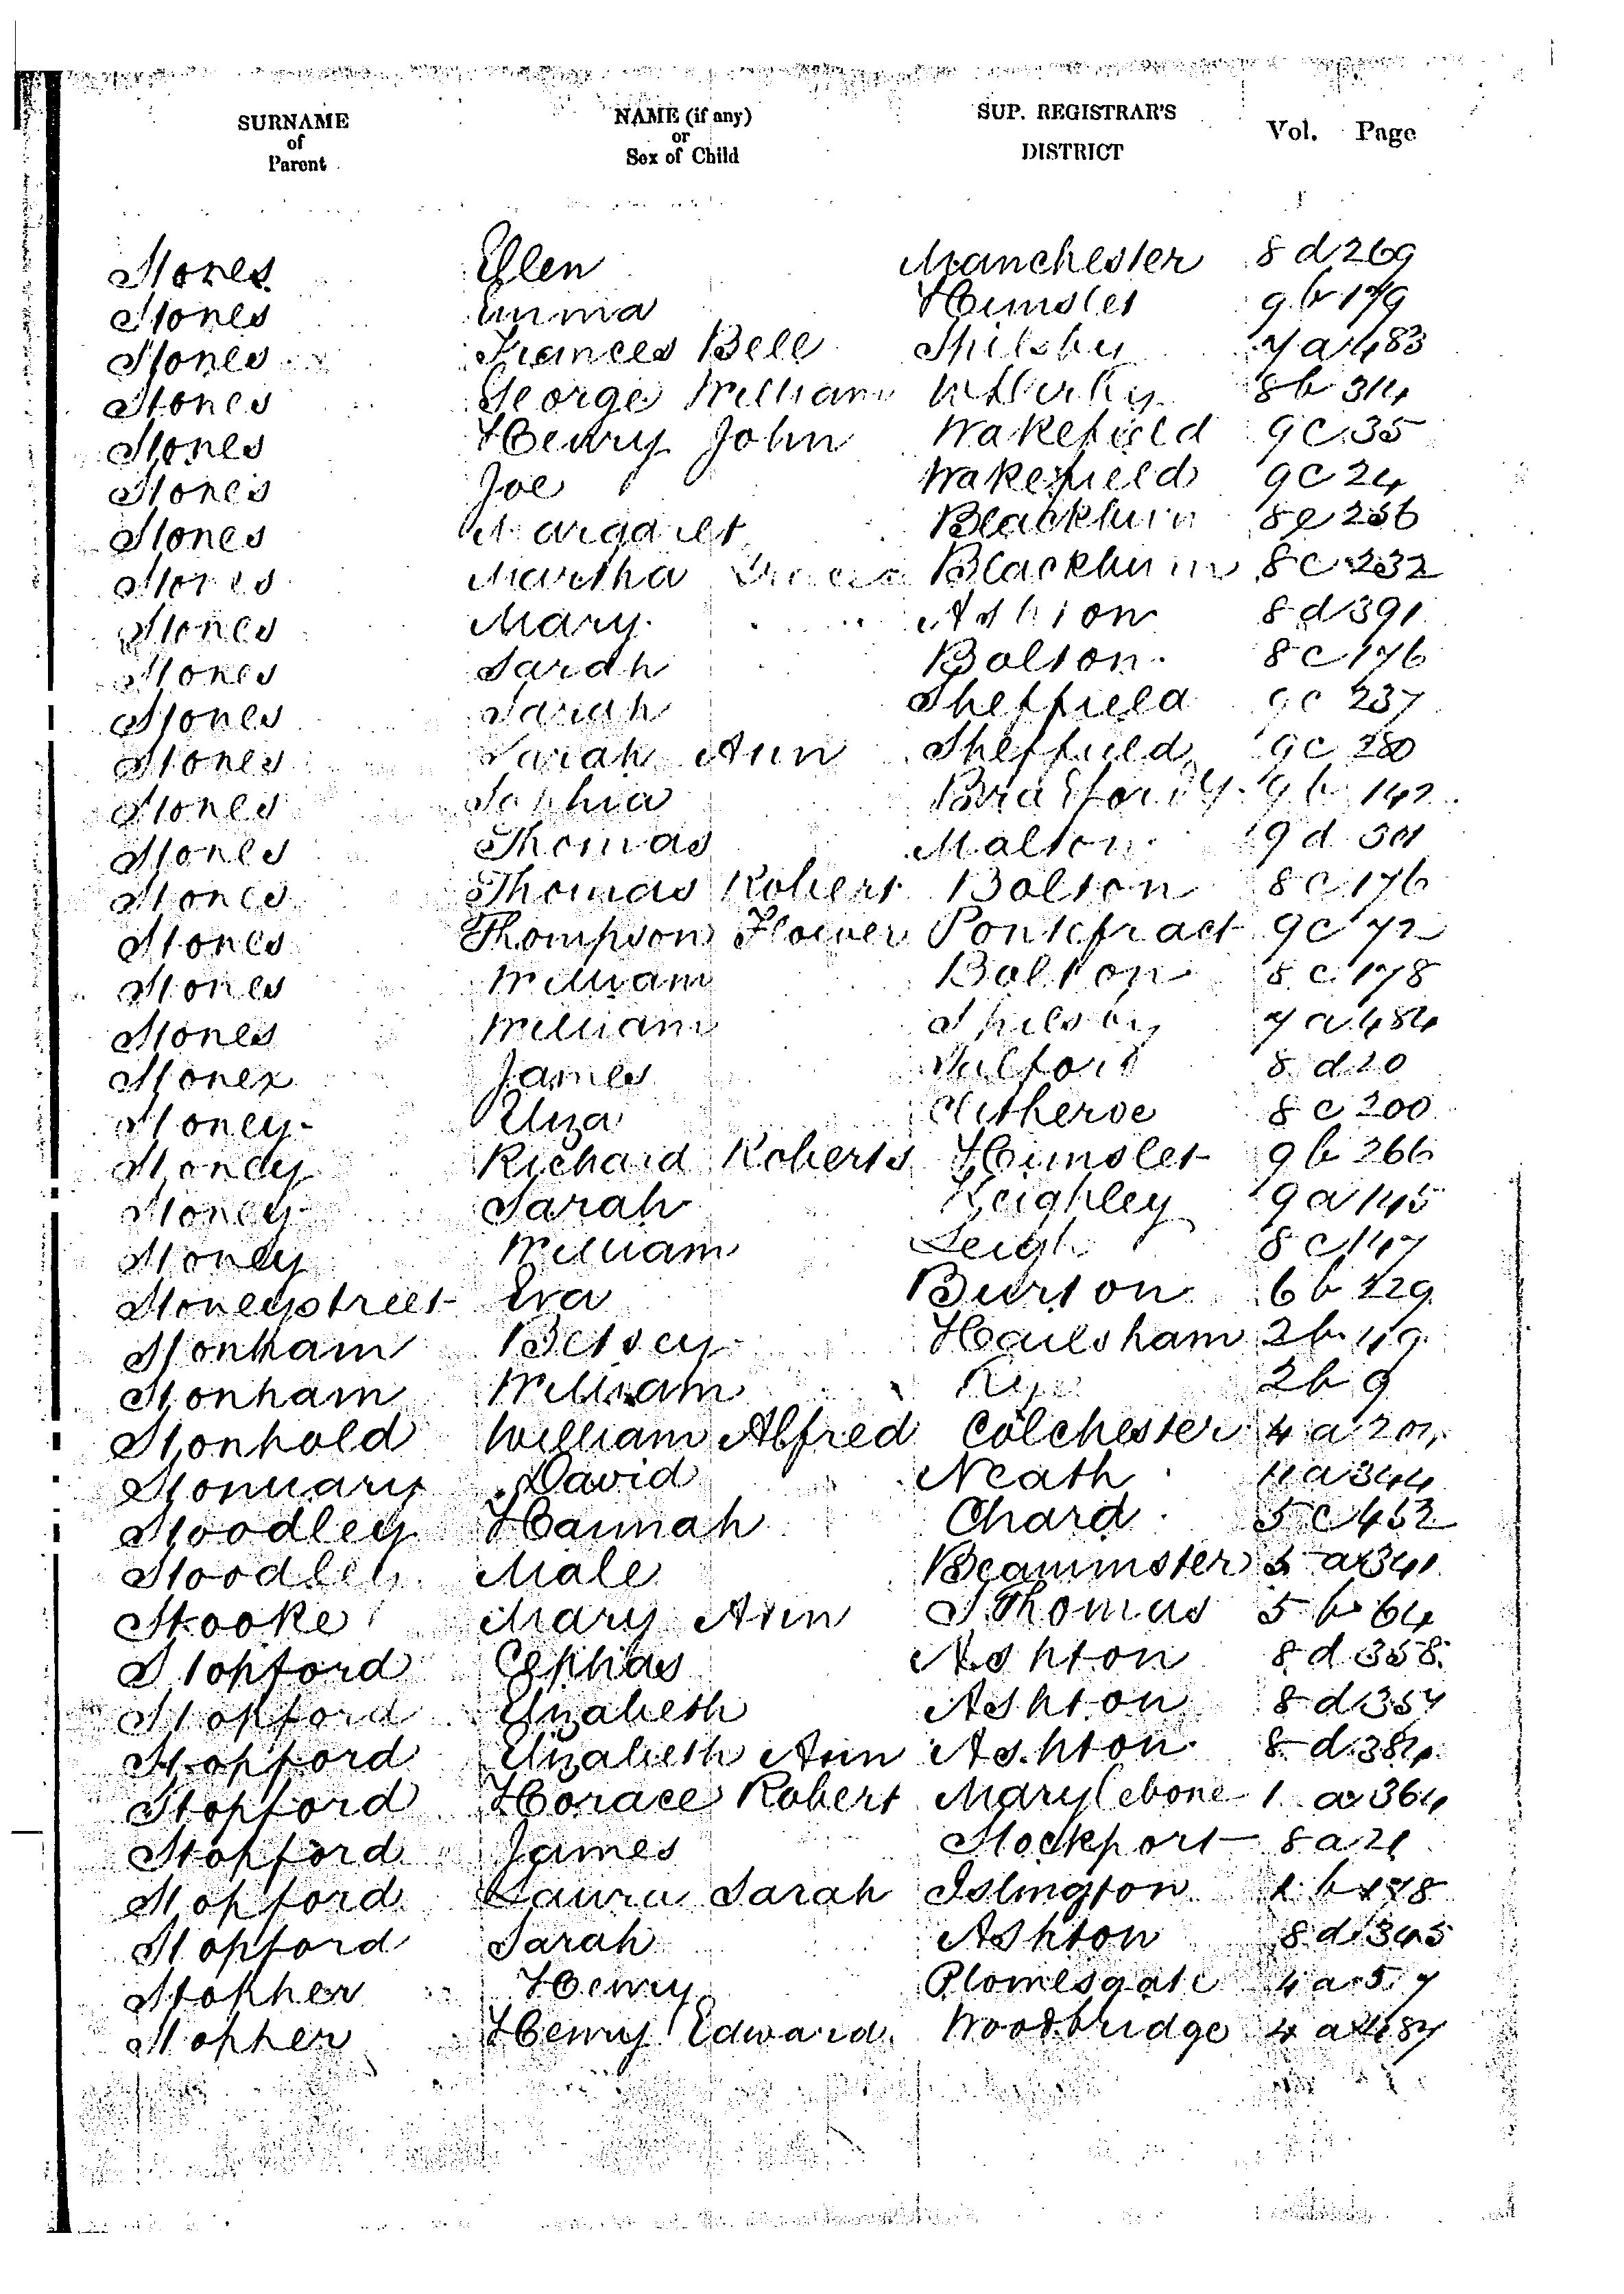 SURNAME of Parent NAME (if any) or Sex of Child SUP. REGISTRAR'S DISTRICT Vol. Page
Stones Ellen Manchester 8 d 269
Stones Emma Hunslet 9 b 179
Stones Frances Bell Spilsby 7 a 483
Stones George William W. Derby 8 b 314
Stones Henry John Wakefield 9 c 35
Stones Joe Wakefield 9 c 24
Stones Margaret Blackburn 8 e 256
Stones Martha Blackburn 8 c 232
Stones Mary Ashton 8 d 391
Stones Sarah Bolton 8 c 176
Stones Sarah Sheffield 9 c 237
Stones Sarah Ann Sheffield 9 c 280
Stones Sophia Bradford Y. 9 b 142
Stones Thomas Malton 9 d 301
Stones Thomas Robert Bolton 8 c 176
Stones Thompson Flower Pontefract 9 c 72
Stones William Bolton 8 c 178
Stones William Spilsby 7 a 484
Stonex James Salford 8 d 20
Stoney Eliza Clitheroe 8 e 200
Stoney Richard Roberts Hunslet 9 b 266
Stoney Sarah Keighley 9 a 145
Stoney William Leigh 8 c 147
Stoneystreet Eva Burton 6 b 229
Stonham Betsey Hailsham 2 b 49
Stonham William Rye 2 b 9
Stonhold William Alfred Colchester 4 a 201
Stonuary David Neath 11 a 344
Stoodley Hannah Chard 5 c 452
Stoodley Male Beaminster 5 a 341
Stooke Mary Ann S. Thomas 5 b 64
Stopford Cephas Ashton 8 d 358
Stopford Elizabeth Ashton 8 d 357
Stopford Elizabeth Ann Ashton 8 d 384
Stopford Horace Robert Marylebone 1 a 364
Stopford James Stockport 8 a 21
Stopford Laura Sarah Islington 1 b 178
Stopford Sarah Ashton 8 d 345
Stopher Henry Plomesgate 4 a 57
Stopher Henry Edward Woodbridge 4 a 487